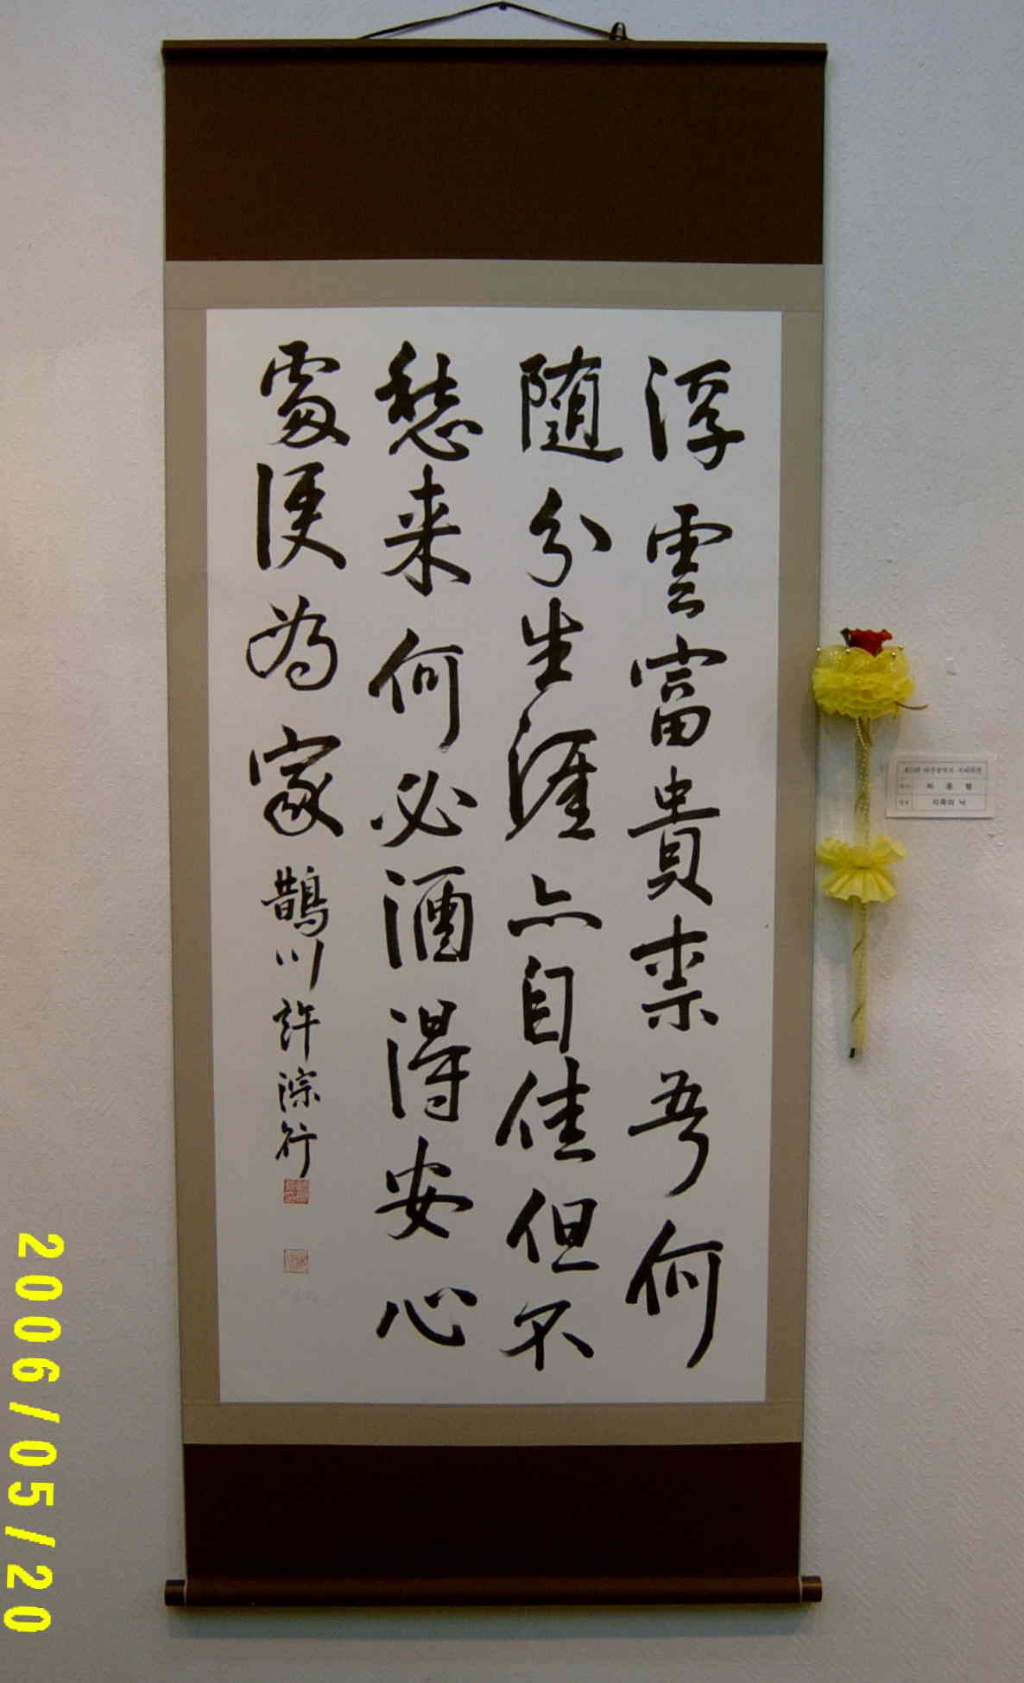 浮雲富貴柰吾何
随分生涯亦自佳但不
愁来何必酒得安心
處便為家
鵲川 許淙行
2006/05/20